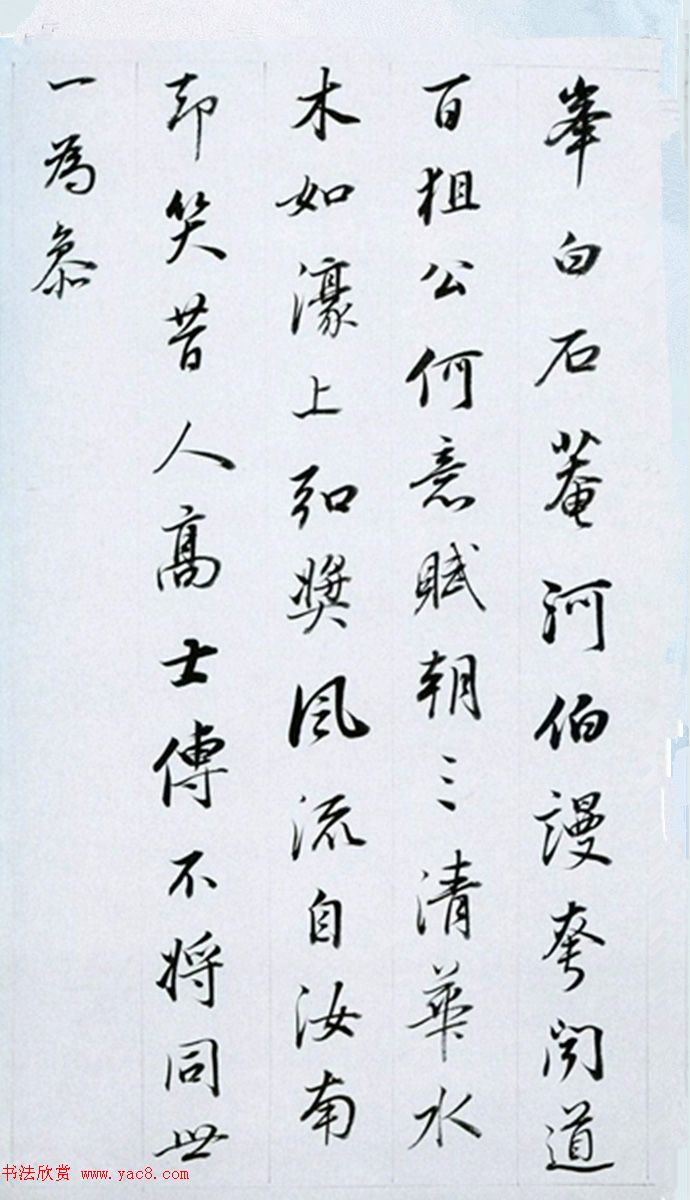 峯白石菴河伯謾夸聞道
百狙公何意賦朝三清華水
木如濠上弘奬風流自汝南
却笑昔人高士傳不將同世
一為叅
书法欣赏 www.yac8.com